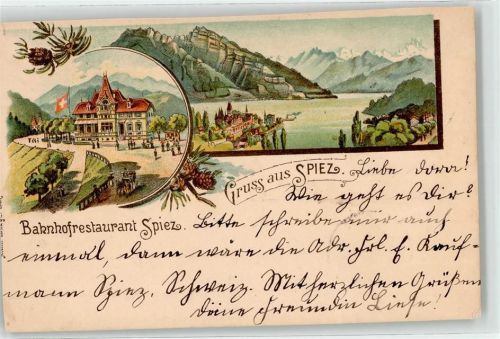 Gruss aus SPIEZ. Liebe Dora!
Wie geht es Dir?
Bahnhofrestaurant Spiez. Bitte schreibe mir auch
einmal, dann wäre die Adr. Frl. E. Kauf-
mann Spiez. Schweiz. Mit herzlichen Grüßen
Deine Freundin Liese!